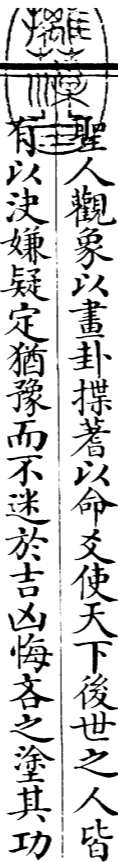 聖人觀象以畫卦揲蓍以命爻使天下後世之人皆
有以決嫌疑定猶豫而不迷於吉凶悔吝之塗其功